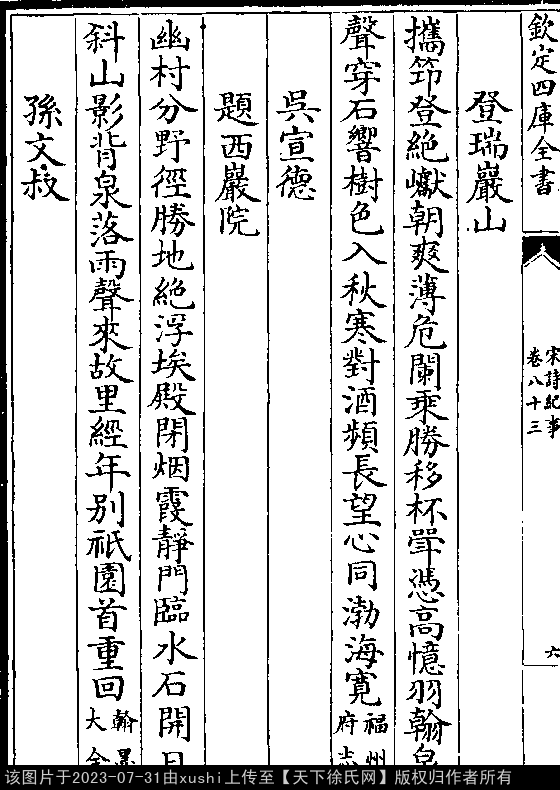 欽定四庫全書
宋詩紀事
卷八十三
六
登瑞巖山
攜筇登絶巘朝爽薄危闌乗勝移杯斝憑高憶羽翰泉
聲穿石響樹色入秋寒對酒頻長望心同渤海寛福州
府志
吳宣德
題西巖院
幽村分野徑勝地絶浮埃殿閉烟霞靜門臨水石開日
斜山影背泉落雨聲來故里經年别祇園首重回翰墨
大全
孫文叔
该图片于2023-07-31由xushi上传至【天下徐氏网】版权归作者所有